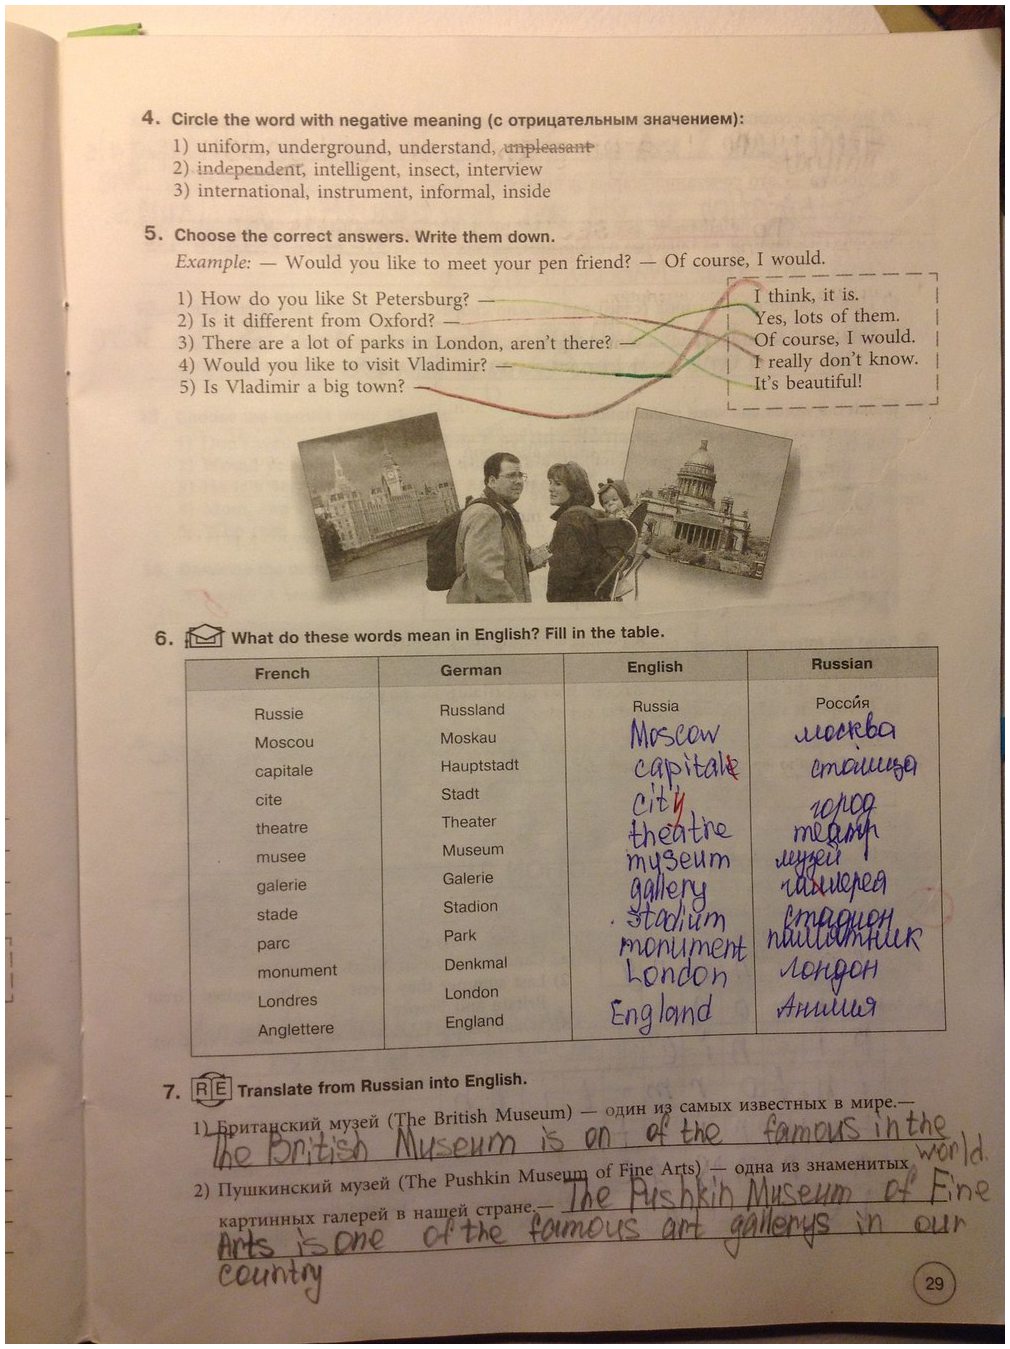 4. Circle the word with negative meaning (с отрицательным значением):
1) uniform, underground, understand, unpleasant
2) independent, intelligent, insect, interview
3) international, instrument, informal, inside
5. Choose the correct answers. Write them down.
Example: — Would you like to meet your pen friend? — Of course, I would.
1) How do you like St Petersburg? —
2) Is it different from Oxford? —
3) There are a lot of parks in London, aren't there? —
4) Would you like to visit Vladimir? —
5) Is Vladimir a big town? —
I think, it is.
Yes, lots of them.
Of course, I would.
I really don't know.
It's beautiful!
6. What do these words mean in English? Fill in the table.
French German English Russian
Russie Russland Russia Россия
Moscou Moskau Moscow москва
capitale Hauptstadt capital столица
cite Stadt city город
theatre Theater theatre театр
musee Museum museum музей
galerie Galerie gallery галлерея
stade Stadion stadium стадион
parc Park monument памятник
monument Denkmal London лондон
Londres London England Англия
Anglettere England
7. RE Translate from Russian into English.
1) Британский музей (The British Museum) — один из самых известных в мире.—
The British Museum is on of the famous in the
world.
2) Пушкинский музей (The Pushkin Museum of Fine Arts) — одна из знаменитых
картинных галерей в нашей стране.— The Pushkin Museum of Fine
Arts is one of the famous art gallerys in our
country
29